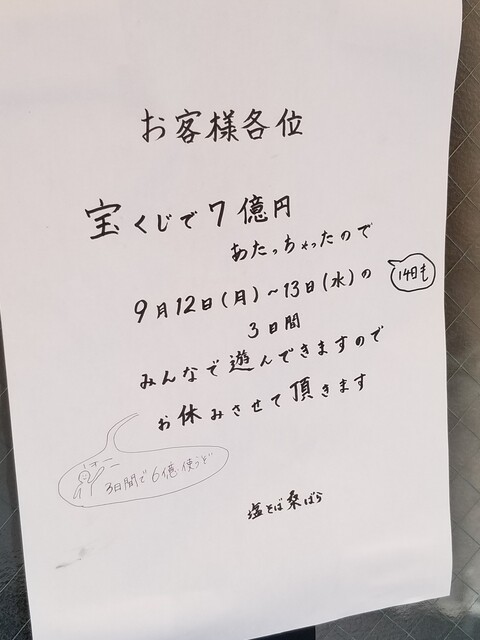 お客様各位
宝くじで7億円
あたっちゃったので
9月12日(月)~13日(水)の
14日も
3日間
みんなで遊んできますので
お休みさせて頂きます
3日間で6億使うぞ
塩そば桑ばら